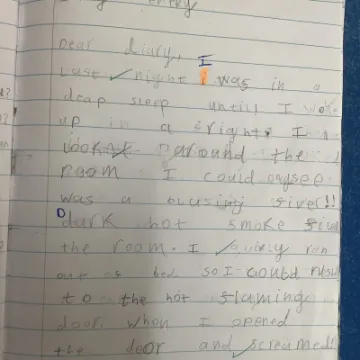 entry
Dear diary, I
Last night I was in a
deap sleep untill I woke
up in a fright. I
lookt around the
room I could onysee
was a blasing fiver!!
Dark hot smoke filled
the room. I quikly ran
out of bed so I could rush
to the hot flaming
door. When I opened
the door and screamed!